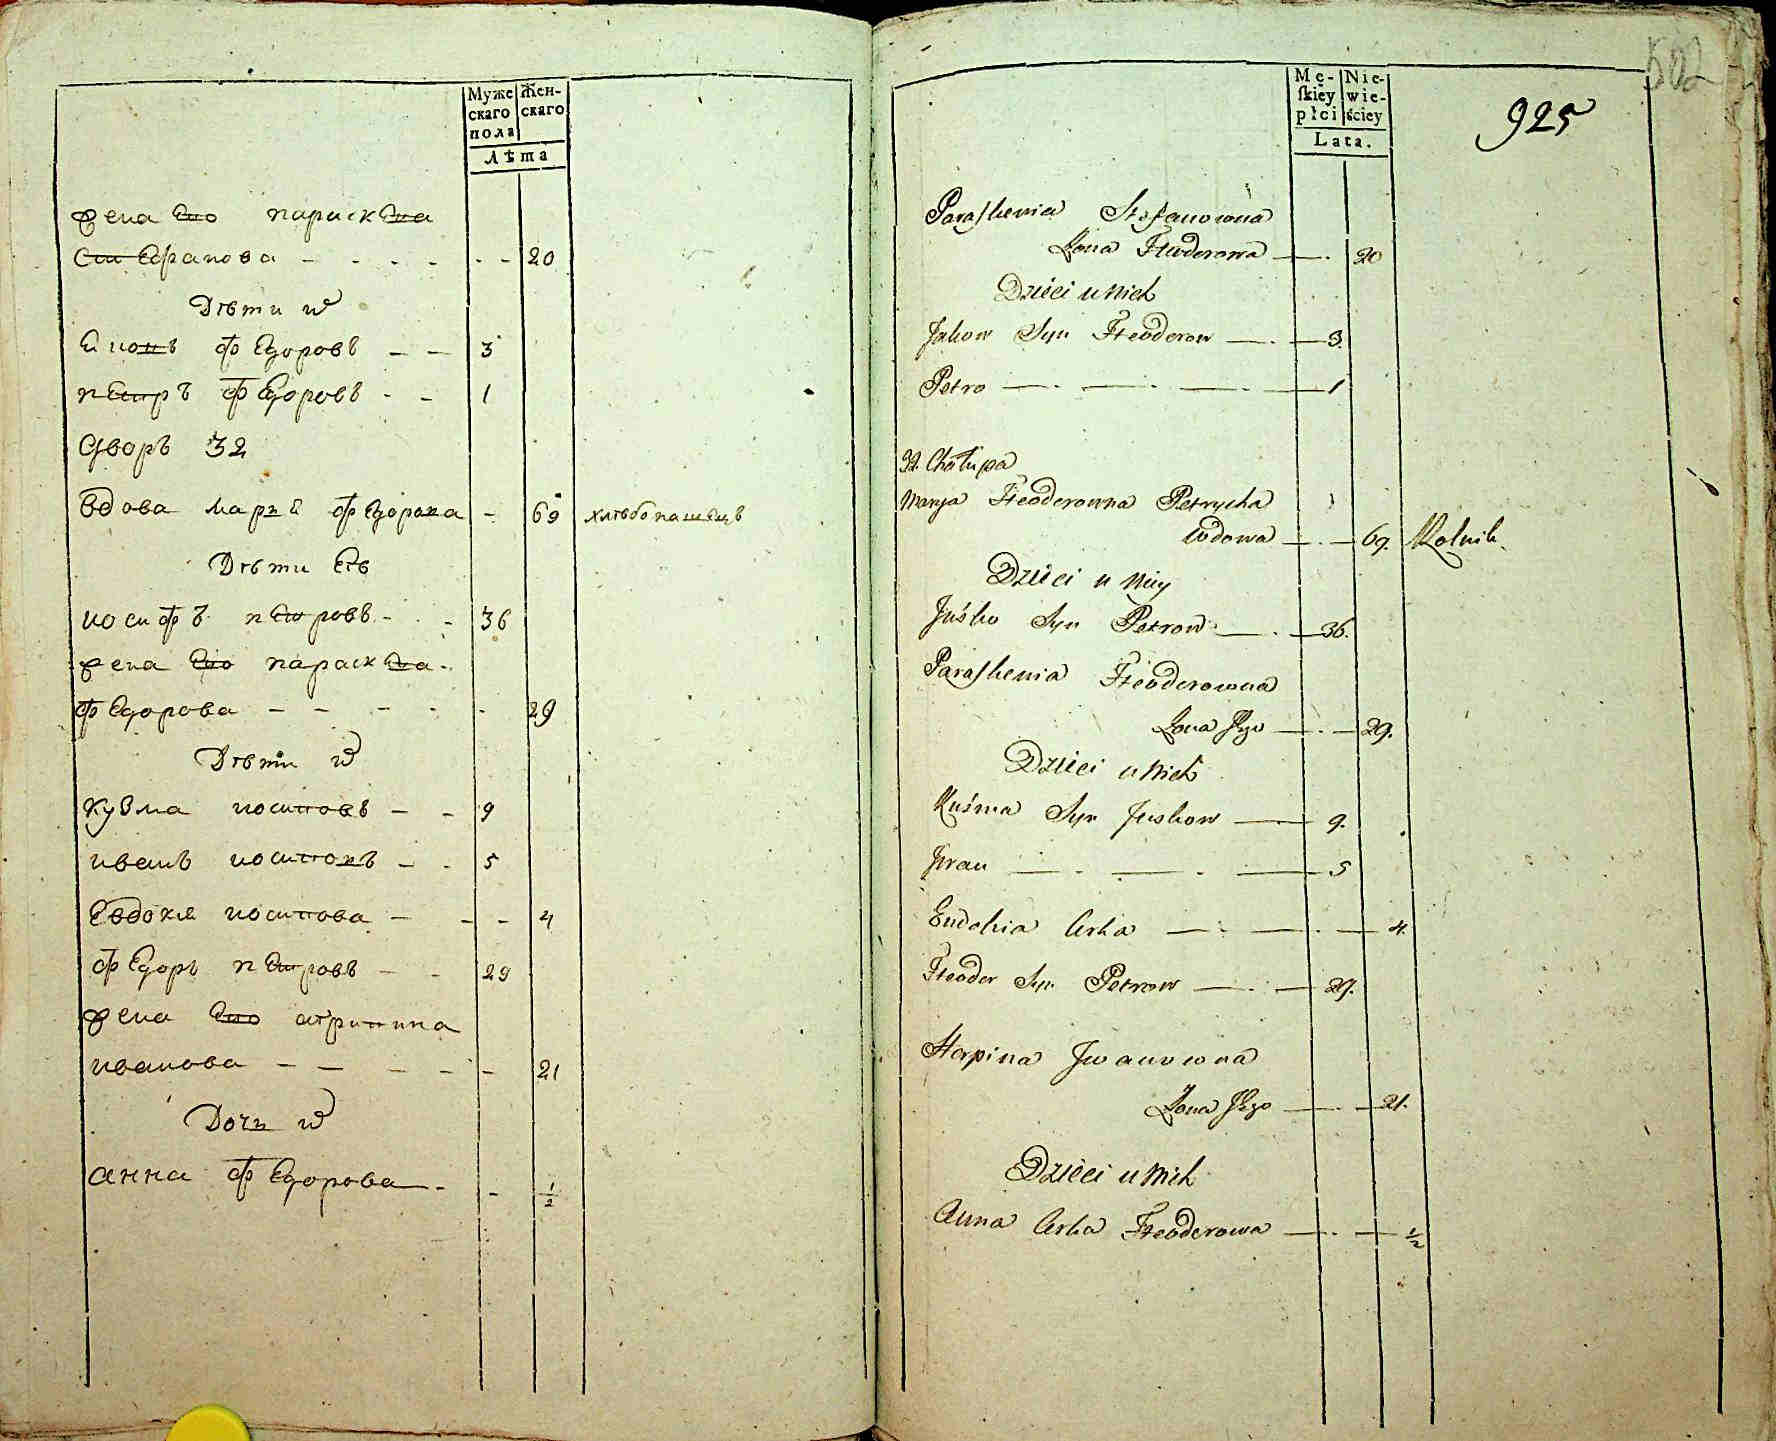 Муже
скаго
пола
Жен-
скаго
Лѣта
жена его параскева
стефанова - - - - - - 20
Дѣти их
яковъ федоровъ - - 3
петръ федоровъ - - 1
дворъ 32
вдова мария федорова - 69 хлѣбопашецъ
Дѣти ея
иосифъ петровъ - - 36
жена его параскева
федорова - - - - - 29
Дѣти их
кузма иосиповъ - - 9
иванъ иосиповъ - - 5
евдокия иосипова - - - 4
федоръ петровъ - - 29
жена его агрипина
иванова - - - - - 21
Дочь их
анна федорова - - 1/2
Mę-
skiey
płci
Nie-
wie-
ściey
Lata.
502
925
Paraskewia Stefanowna
Żona Fteoderowa — . 20
Dzieci u Nich
Jakow Syn Fteoderow — . — 3.
Petro — . — . — . — 1
32. Chałupa
Marya Fteoderowna Petrycha
wdowa — . — 69. Rolnik.
Dzieci u Niey
Juśko Syn Petrow — . — 36.
Paraskewia Fteoderowna
Żona Jego — . — 29.
Dzieci u Nich
Kuśma Syn Juskow — — 9.
Iwan — . — . — 5
Eudokia Corka — . — . — 4.
Fteoder Syn Petrow — . — 29.
Horpina Jwanowna
Żona Jego — . — 21.
Dzieci u Nich
Anna Corka Fteoderowa — . — 1/2